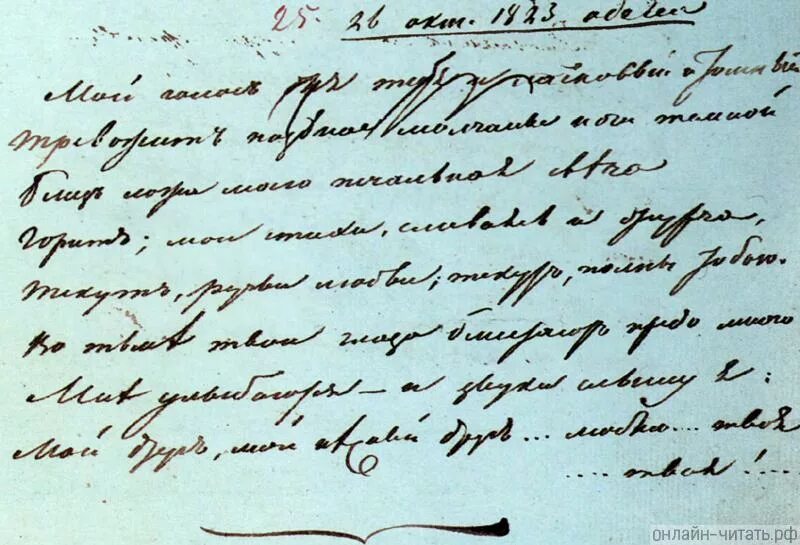 25. 26 окт. 1823. Одесса
Мой голосъ для тебя и ласковый и томный
Тревожитъ позднее молчанье ночи темной
Близъ ложа моего печальная свѣча
Горитъ; мои стихи, сливаясь и журча,
Текутъ, ручьи любви; текутъ, полны тобою.
Во тьмѣ твои глаза блистаютъ предо мною
Мнѣ улыбаются — и звуки слышу я:
Мой другъ, мой нѣжный другъ... люблю... твоя
.... твоя!....
онлайн-читать.рф